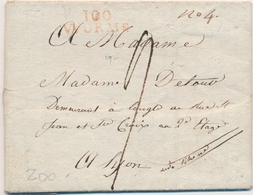 100
WORMS
No 4
A Madame
Madame Detout
Demeurant à l'angle de
Jean et Ste Croix au 2d Etage
A Lyon
200